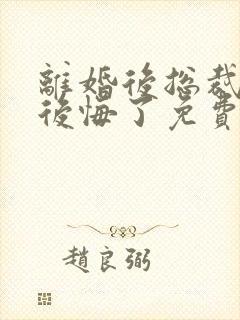 離婚後總裁
後悔了免費
趙良弼